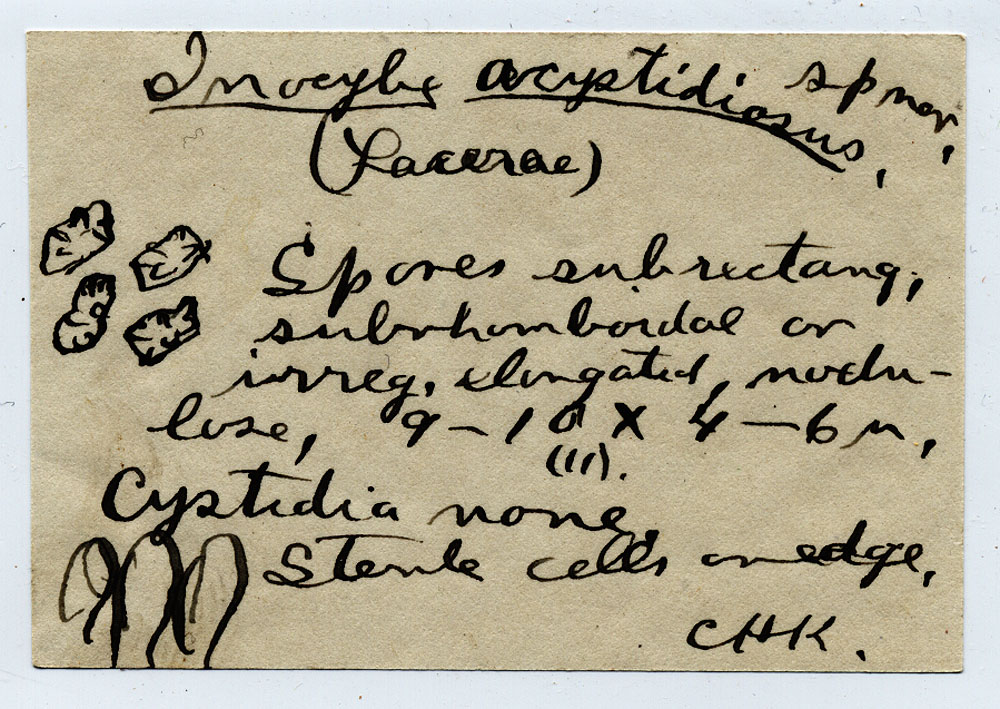 Inocybe acystidiosus, sp nov,
(Lacerae)
Spores subrectang,
subrhomboidal or
irreg, elongated, nodu-
lose, 9-10 X 4-6 µ,
(11).
Cystidia none,
Sterile cells on edge,
CHK.